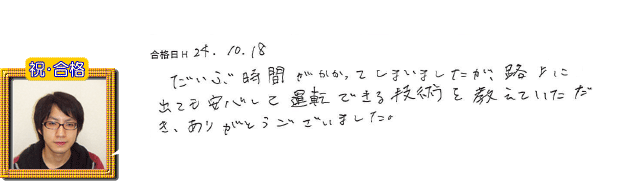 祝・合格
合格日 H 24. 10. 18
だいぶ時間がかかってしまいましたが、路上に
出ても安心して運転できる技術を教えていただ
き、ありがとうございました。